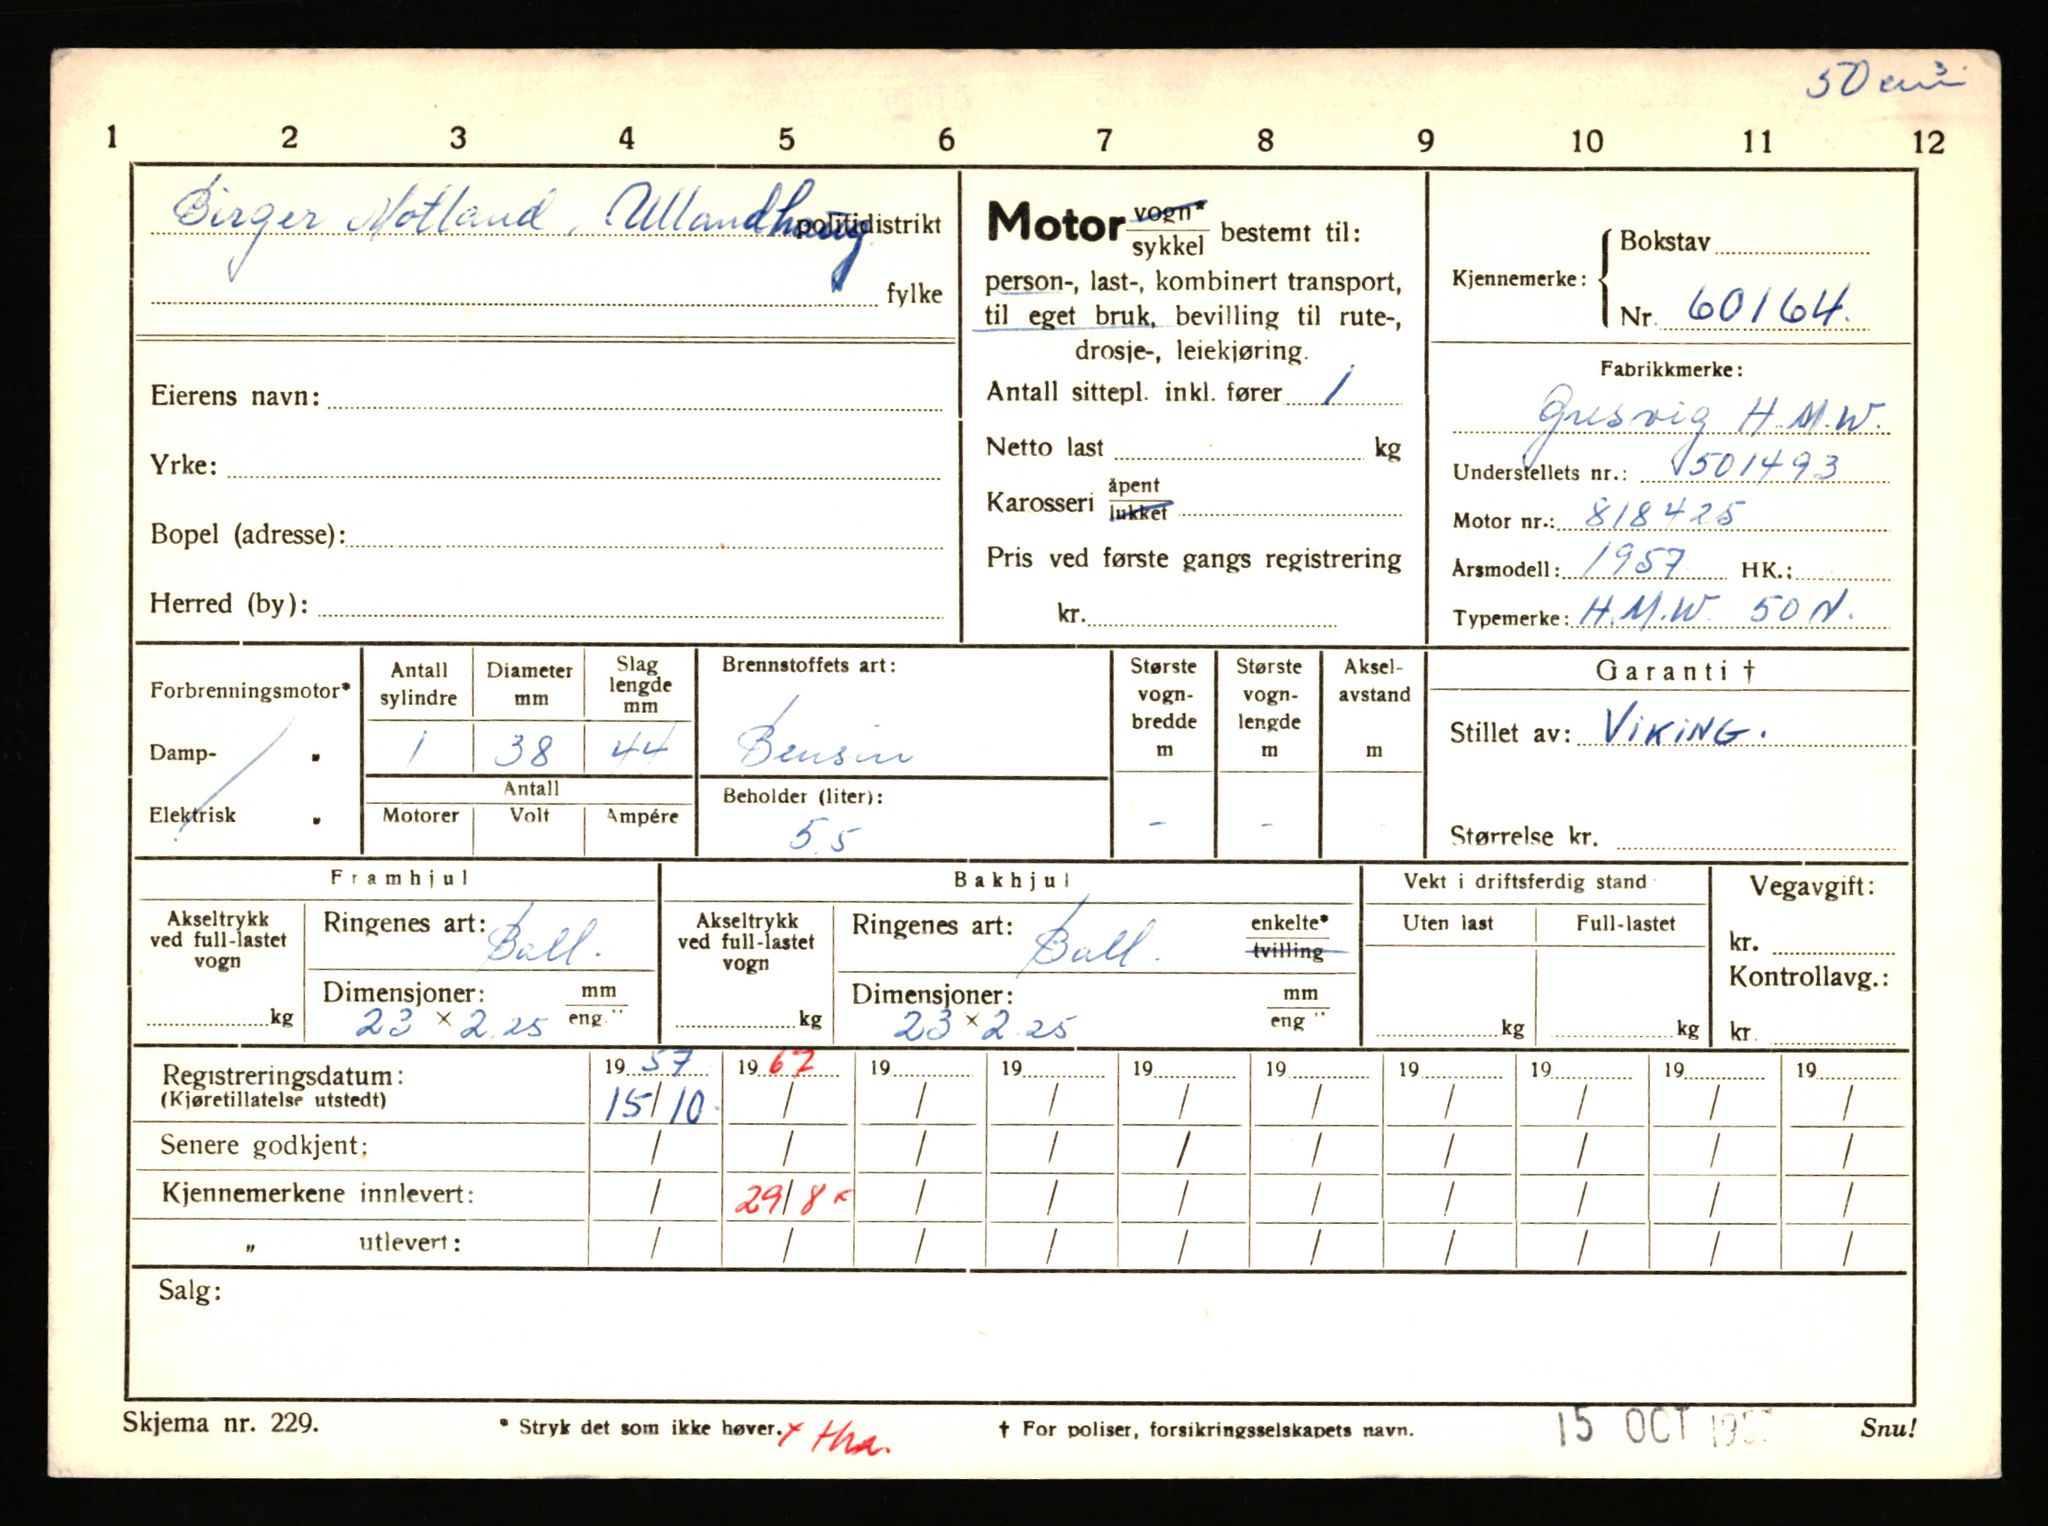 50 cm³
1 2 3 4 5 6 7 8 9 10 11 12
Birger Motland, Ullandhaug politidistrikt
fylke
Eierens navn:
Yrke:
Bopel (adresse):
Herred (by):
Motor vogn* / sykkel bestemt til:
person-, last-, kombinert transport,
til eget bruk, bevilling til rute-,
drosje-, leiekjøring.
Antall sittepl. inkl. fører 1
Netto last kg
Karosseri åpent / lukket
Pris ved første gangs registrering
kr.
Kjennemerke: Bokstav
Nr. 60164.
Fabrikkmerke:
Gresvig H.M.W.
Understellets nr.: 501493
Motor nr.: 818425
Årsmodell: 1957 HK.:
Typemerke: H.M.W. 50 N.
Forbrenningsmotor*
Damp- "
Elektrisk "
Antall sylindre Diameter mm Slaglengde mm
1 38 44
Antall
Motorer Volt Ampére
Brennstoffets art:
Bensin
Beholder (liter):
5,5
Største vogn-bredde m
-
Største vogn-lengde m
-
Aksel-avstand m
Garanti †
Stillet av: VIKING.
Størrelse kr.
Framhjul
Akseltrykk ved full-lastet vogn
kg
Ringenes art: Ball.
Dimensjoner: mm / eng."
23 x 2.25
Bakhjul
Akseltrykk ved full-lastet vogn
kg
Ringenes art: Ball. enkelte* / tvilling
Dimensjoner: mm / eng "
23 x 2.25
Vekt i driftsferdig stand
Uten last Full-lastet
kg kg
Vegavgift:
kr.
Kontrollavg.:
kr.
Registreringsdatum: 19 57 19 67 19 19 19 19 19 19 19 19
(Kjøretillatelse utstedt) 15/10 / / / / / / / / /
Senere godkjent: / / / / / / / / / /
Kjennemerkene innlevert: / 29/8 x / / / / / / / /
" utlevert: / / / / / / / / / /
Salg:
Skjema nr. 229. * Stryk det som ikke høver. † For poliser, forsikringsselskapets navn. 15 OCT 1957 Snu!